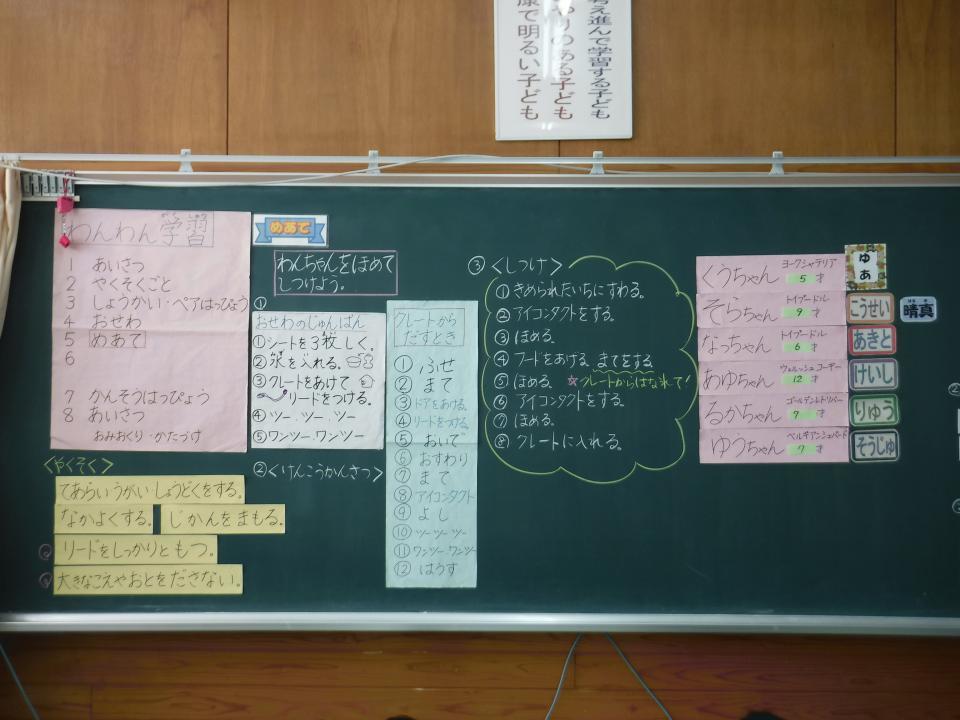 考え進んで学習する子ども
やりのある子ども
康で明るい子ども
わんわん学習
1 あいさつ
2 やくそくごと
3 しょうかい・ペアはっぴょう
4 おせわ
5 めあて
6
7 かんそうはっぴょう
8 あいさつ
おみおくり・かたづけ
<やくそく>
てあらい うがい しょうどくをする。
なかよくする。
じかんをまもる。
リードをしっかりともつ。
大きなこえやおとをださない。
めあて
わんちゃんをほめて
しつけよう。
①
おせわのじゅんばん
①シートを3枚しく。
②氷を入れる。
③クレートをあけて
リードをつける。
④ツー ツー ツー
⑤ワンツー.ワンツー
②<けんこうかんさつ>
クレートから
だすとき
①ふせ
②まて
③ドアをあける。
④リードをつける。
⑤おいで
⑥おすわり
⑦まて
⑧アイコンタクト
⑨よし
⑩ツー ツー ツー
⑪ワンツー.ワンツー
⑫はうす
③<しつけ>
①きめられたいちにすわる。
②アイコンタクトをする。
③ほめる。
④フードをあける。まてをする
⑤ほめる。☆クレートからはなれて!
⑥アイコンタクトをする。
⑦ほめる。
⑧クレートに入れる。
くうちゃん ヨークシャテリア 5才
そらちゃん トイプードル 9才
なっちゃん トイプードル 6才
あゆちゃん ウェルシュコーギー 12才
るかちゃん ゴールデンレトリバー 7才
ゆうちゃん ベルギアンシェパード 7才
ゆあ
こうせい
晴真
あきと
けいし
りゅう
そうじゅ